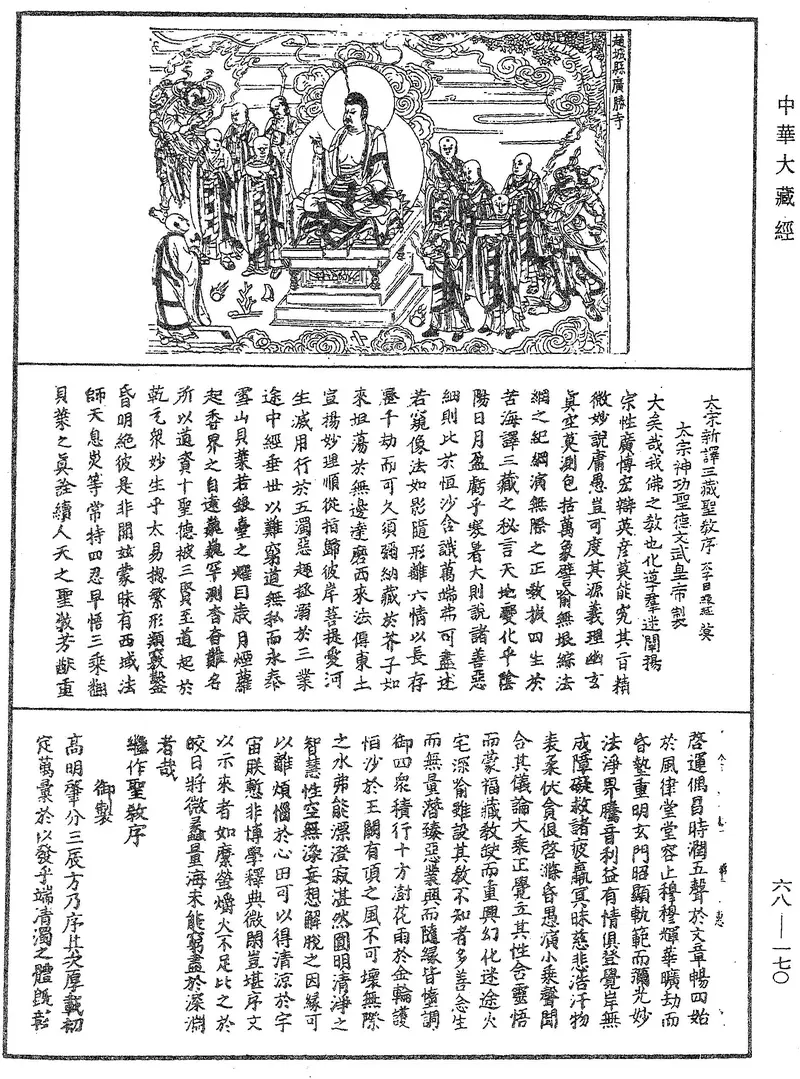 中華大藏經
趙城縣廣勝寺
太宗新譯三藏聖教序
太宗神功聖德文武皇帝製
大矣哉我佛之教也化導羣迷闡揚
宗性廣博宏辯英彥莫能究其旨精
微妙說庸愚豈可度其源義理幽玄
真空莫測包括萬象譬喻無垠綜法
網之紀綱演無際之正教拔四生於
苦海譯三藏之秘言天地變化乎陰
陽日月盈虧乎寒暑大則說諸善惡
細則比於恒沙含識萬端弗可盡述
若窺像法如影隨形離六情以長存
歷千劫而可久須彌納藏於芥子如
來坦蕩於無邊達磨西來法傳東土
宣揚妙理順從指歸彼岸菩提愛河
生滅用行於五濁惡趣拯溺於三業
途中經垂世以難窮道無私而永泰
雪山貝葉若銀臺之耀目歲月煙蘿
起香界之自遠巍巍罕測杳杳難名
所以道資十聖德被三賢至道起於
乾元衆妙生乎太易揔繁形類竅鑿
昏明絕彼是非開兹蒙昧有西域法
師天息災等常持四忍早悟三乘翻
貝葉之真詮續人天之聖教芳猷重
啓運偶昌時潤五聲於文章暢四始
於風律堂堂容止穆穆輝華曠劫而
昏墊重明玄門昭顯軌範而彌光妙
法淨界騰音利益有情俱登覺岸無
成障礙救諸疲羸冥昧慈悲浩汗物
表柔伏貪很啓滌昏愚演小乘聲聞
合其儀論大乘正覺立其性含靈悟
而蒙福藏教缺而重興幻化迷途火
宅深喻雖設其教不知者多善念生
而無量潛臻惡業興而隨緣皆墮調
御四衆積行十方澍花雨於金輪護
恒沙於王闕有頂之風不可壞無際
之水弗能漂澄寂湛然圓明清淨之
智慧性空無染妄想解脫之因緣可
以離煩惱於心田可以得清涼於宇
宙朕慙非博學釋典微閑豈堪序文
以示來者如縻螢爝火不足比之於
皎日將微蠡量海未能窮盡於深淵
者哉
繼作聖教序
御製
高明肇分三辰方乃序其次厚載初
定萬彙於以發乎端清濁之體旣彰
六八——一七〇